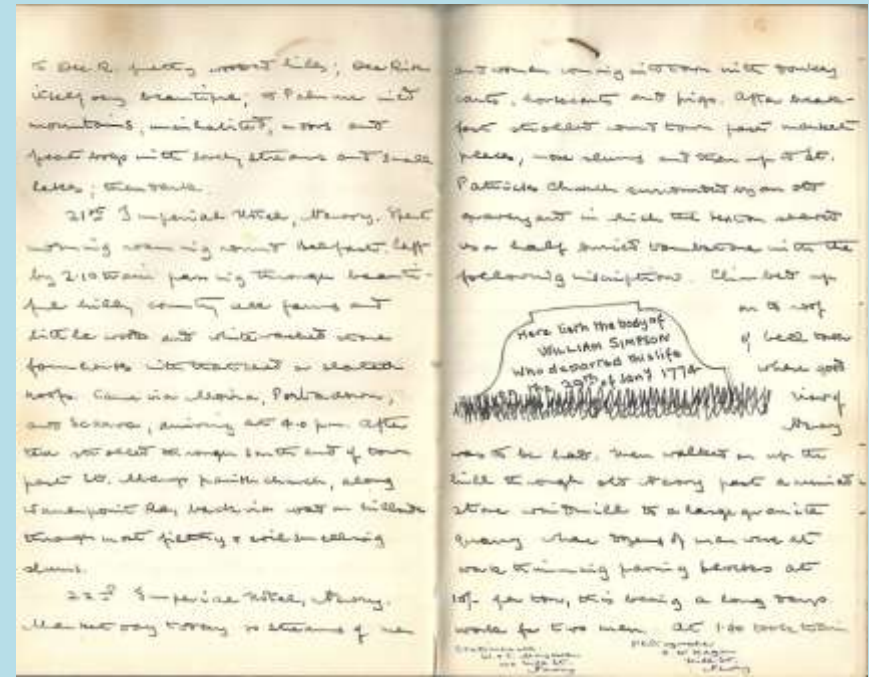 to Dee R. pretty wooded hills; Dee River
itself very beautiful; to Palnure wild
mountains, uninhabited, moors and
peat bogs with lovely streams and small
lakes; then dark.
21st Imperial Hotel, Newry. Spent
morning roaming round Belfast. Left
by 2.10 train passing through beauti-
ful hilly country all farms and
little woods and whitewashed stone
farmhouses with thatched or slated
roofs. Came via Moira, Portadown,
and Scarva, arriving at 4.0 p.m. After
tea strolled through south end of town
past St. Marys parish church, along
Warrenpoint Rd, back via west on hillside
through most filthy & evil smelling
slums.
22nd Imperial Hotel, Newry.
Market day today so streams of men
and women coming into town with donkey
carts, horsecarts and pigs. After break-
fast strolled round town past market
places, more slums and then up to St.
Patricks Church surrounded by an old
graveyard in which the sexton showed
us a half buried tombstone with the
following inscription. Climbed up
on to roof
of bell tower
where good
view of
Newry
Here lieth the body of
WILLIAM SIMPSON
who departed this life
the 29th of Jany 1774
was to be had. Then walked on up the
hill through old Newry past a ruined
stone windmill to a large granite
quarry where dozens of men were at
work trimming paving blocks at
10/- per ton, this being a long days
work for two men. At 1.40 took train
Hill St.
Newry
Photographer
Hill St.
Newry